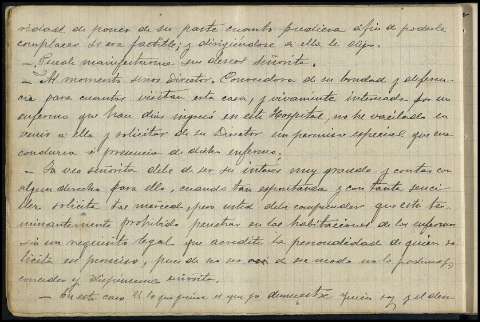 vidad de poner de su parte cuanto pudiera a fin de poderla
complacer si era factible; y dirigiéndose a ella le dijo:
— Puede manifestarme sus deseos señorita.
— Al momento señor Director, Conocedora de su bondad y deferen-
cia para cuantos visitan esta casa, y vivamente interesada por un
enfermo que hace días ingresó en este Hospital, no he vacilado en
venir a ella y solicitar de su Director un permiso especial que me
conduzca a presencia de dicho enfermo;
— La veo señorita debe de ser su interés muy grande y contar con
algún derecho para ello, cuando tan espontánea y con tanta senci-
llez solicita tal merced, pero usted debe comprender que está ter-
minantemente prohibido penetrar en las habitaciones de los enfermos
sin un requisito legal que acredite la personalidad de quien so-
licita su permiso, pues de no ser de ese modo no lo podemos
conceder y dispénseme señorita.
— En este caso V. lo que quiere es que yo demuestre quien soy y el